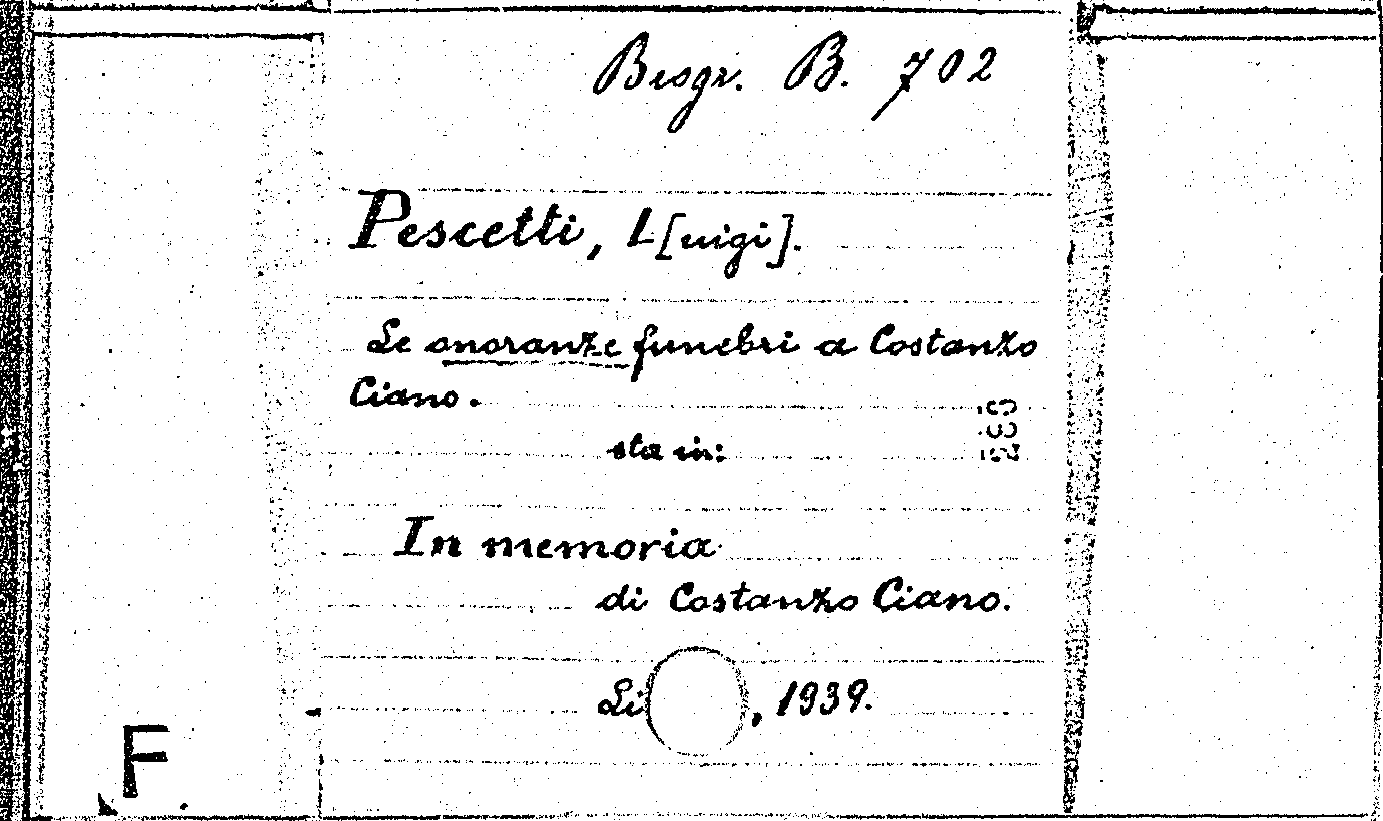 Biogr. B. 702
Pescetti, L[uigi].
Le onoranze funebri a Costanzo
Ciano.
sta in:
In memoria
di Costanzo Ciano.
Li , 1939.
F